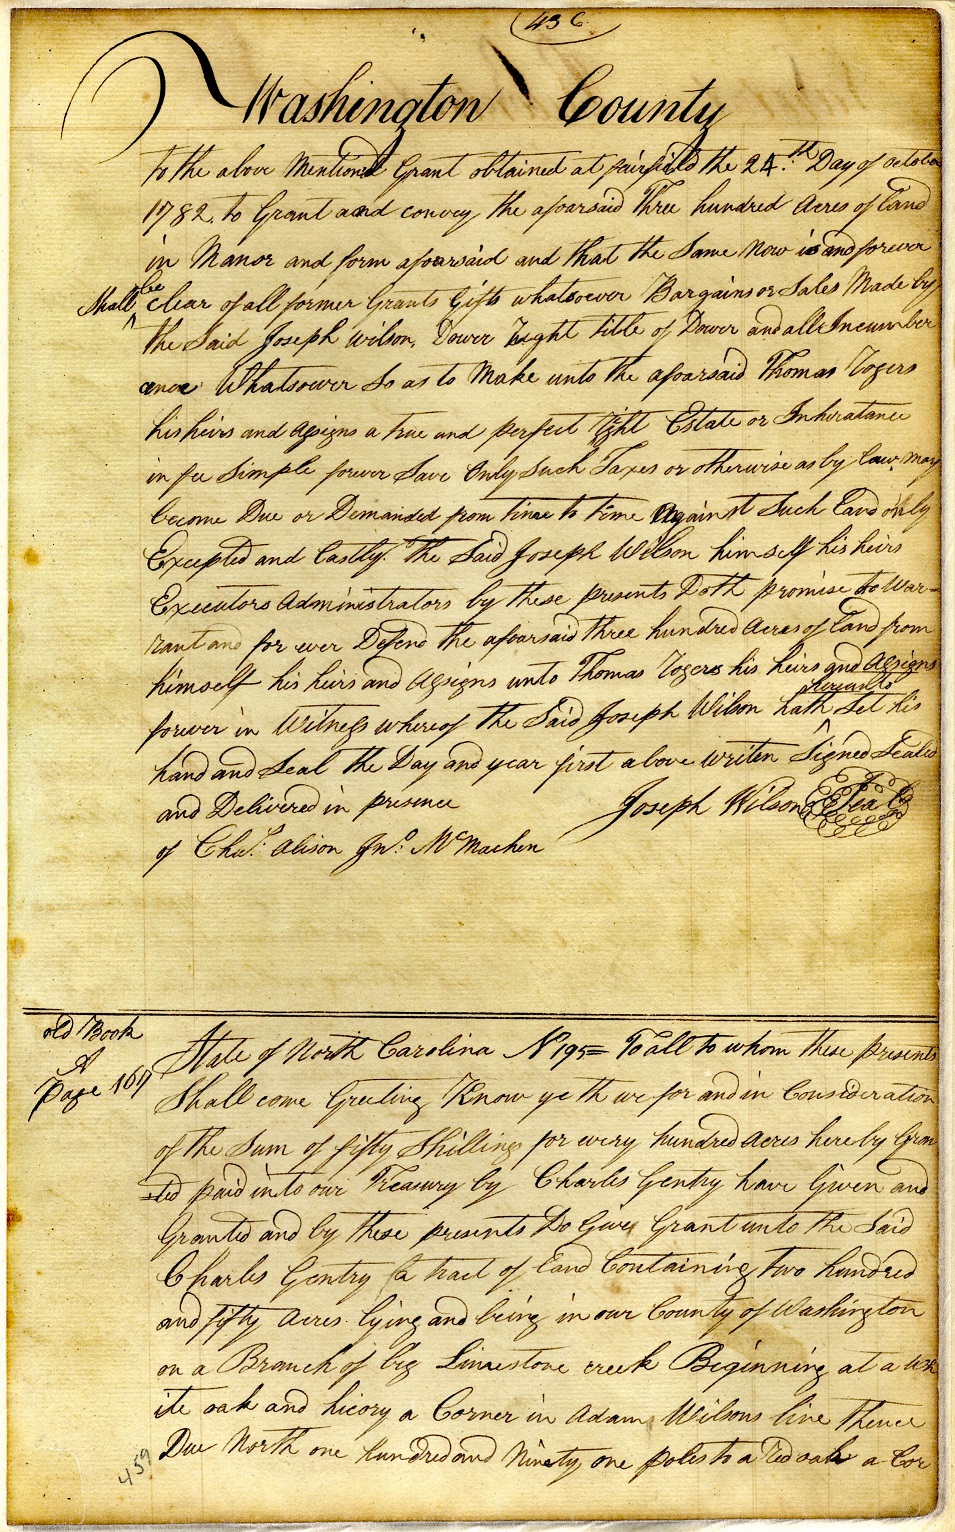 436
Washington County
to the above Mentiond Grant obtained at fairfield the 24th Day of october
1782 to Grant and convey the afoarsaid Three hundred Acres of Land
in Manor and form afoarsaid and that the Same Now is and forever
Shall be clear of all former Grants Gifts whatsoever Bargains or Sales Made by
the Said Joseph Wilson, Dower Right title of Dower and all Incumber
ance Whatsower So as to Make unto the afoarsaid Thomas Rogers
his heirs and Assigns a true and perfect Right Estate or Inheratance
in fee Simple forever Save Only Such Taxes or otherwise as by Law may
become Due or Demanded from time to time Against Such Land only
Excepted and Lastly. The Said Joseph Wilson himself his heirs
Executors Administrators by these presents Doth promise to War-
rant and for ever Defend the afoarsaid three hundred Acres of Land from
himself his heirs and Assigns unto Thomas Rogers his heirs and Assigns
forever in Witness whereof the Said Joseph Wilson hath hereunto Set his
hand and Seal the Day and year first above writen Signed Sealed
and Delivered in presence Joseph Wilson Seal
of Chas. Alison Jno. McMachen
old Book
A
Page 167
State of North Carolina No 195= To all to whom these presents
Shall come Greeting Know ye th we for and in Consideration
of the Sum of fifty Shillings for every hundred Acres hereby Gran
=ted paid into our Treasury by Charles Gentry have Given and
Granted and by these presents Do Give Grant unto the Said
Charles Gentry a tract of Land Containing two hundred
and fifty Acres lying and being in our County of Washington
on a Branch of big Limestone creek Beginning at a wh
ite oak and hicory a Corner in Adam Wilsons line thence
Due North one hundred and Ninety one poles to a Red oak a Cor
459